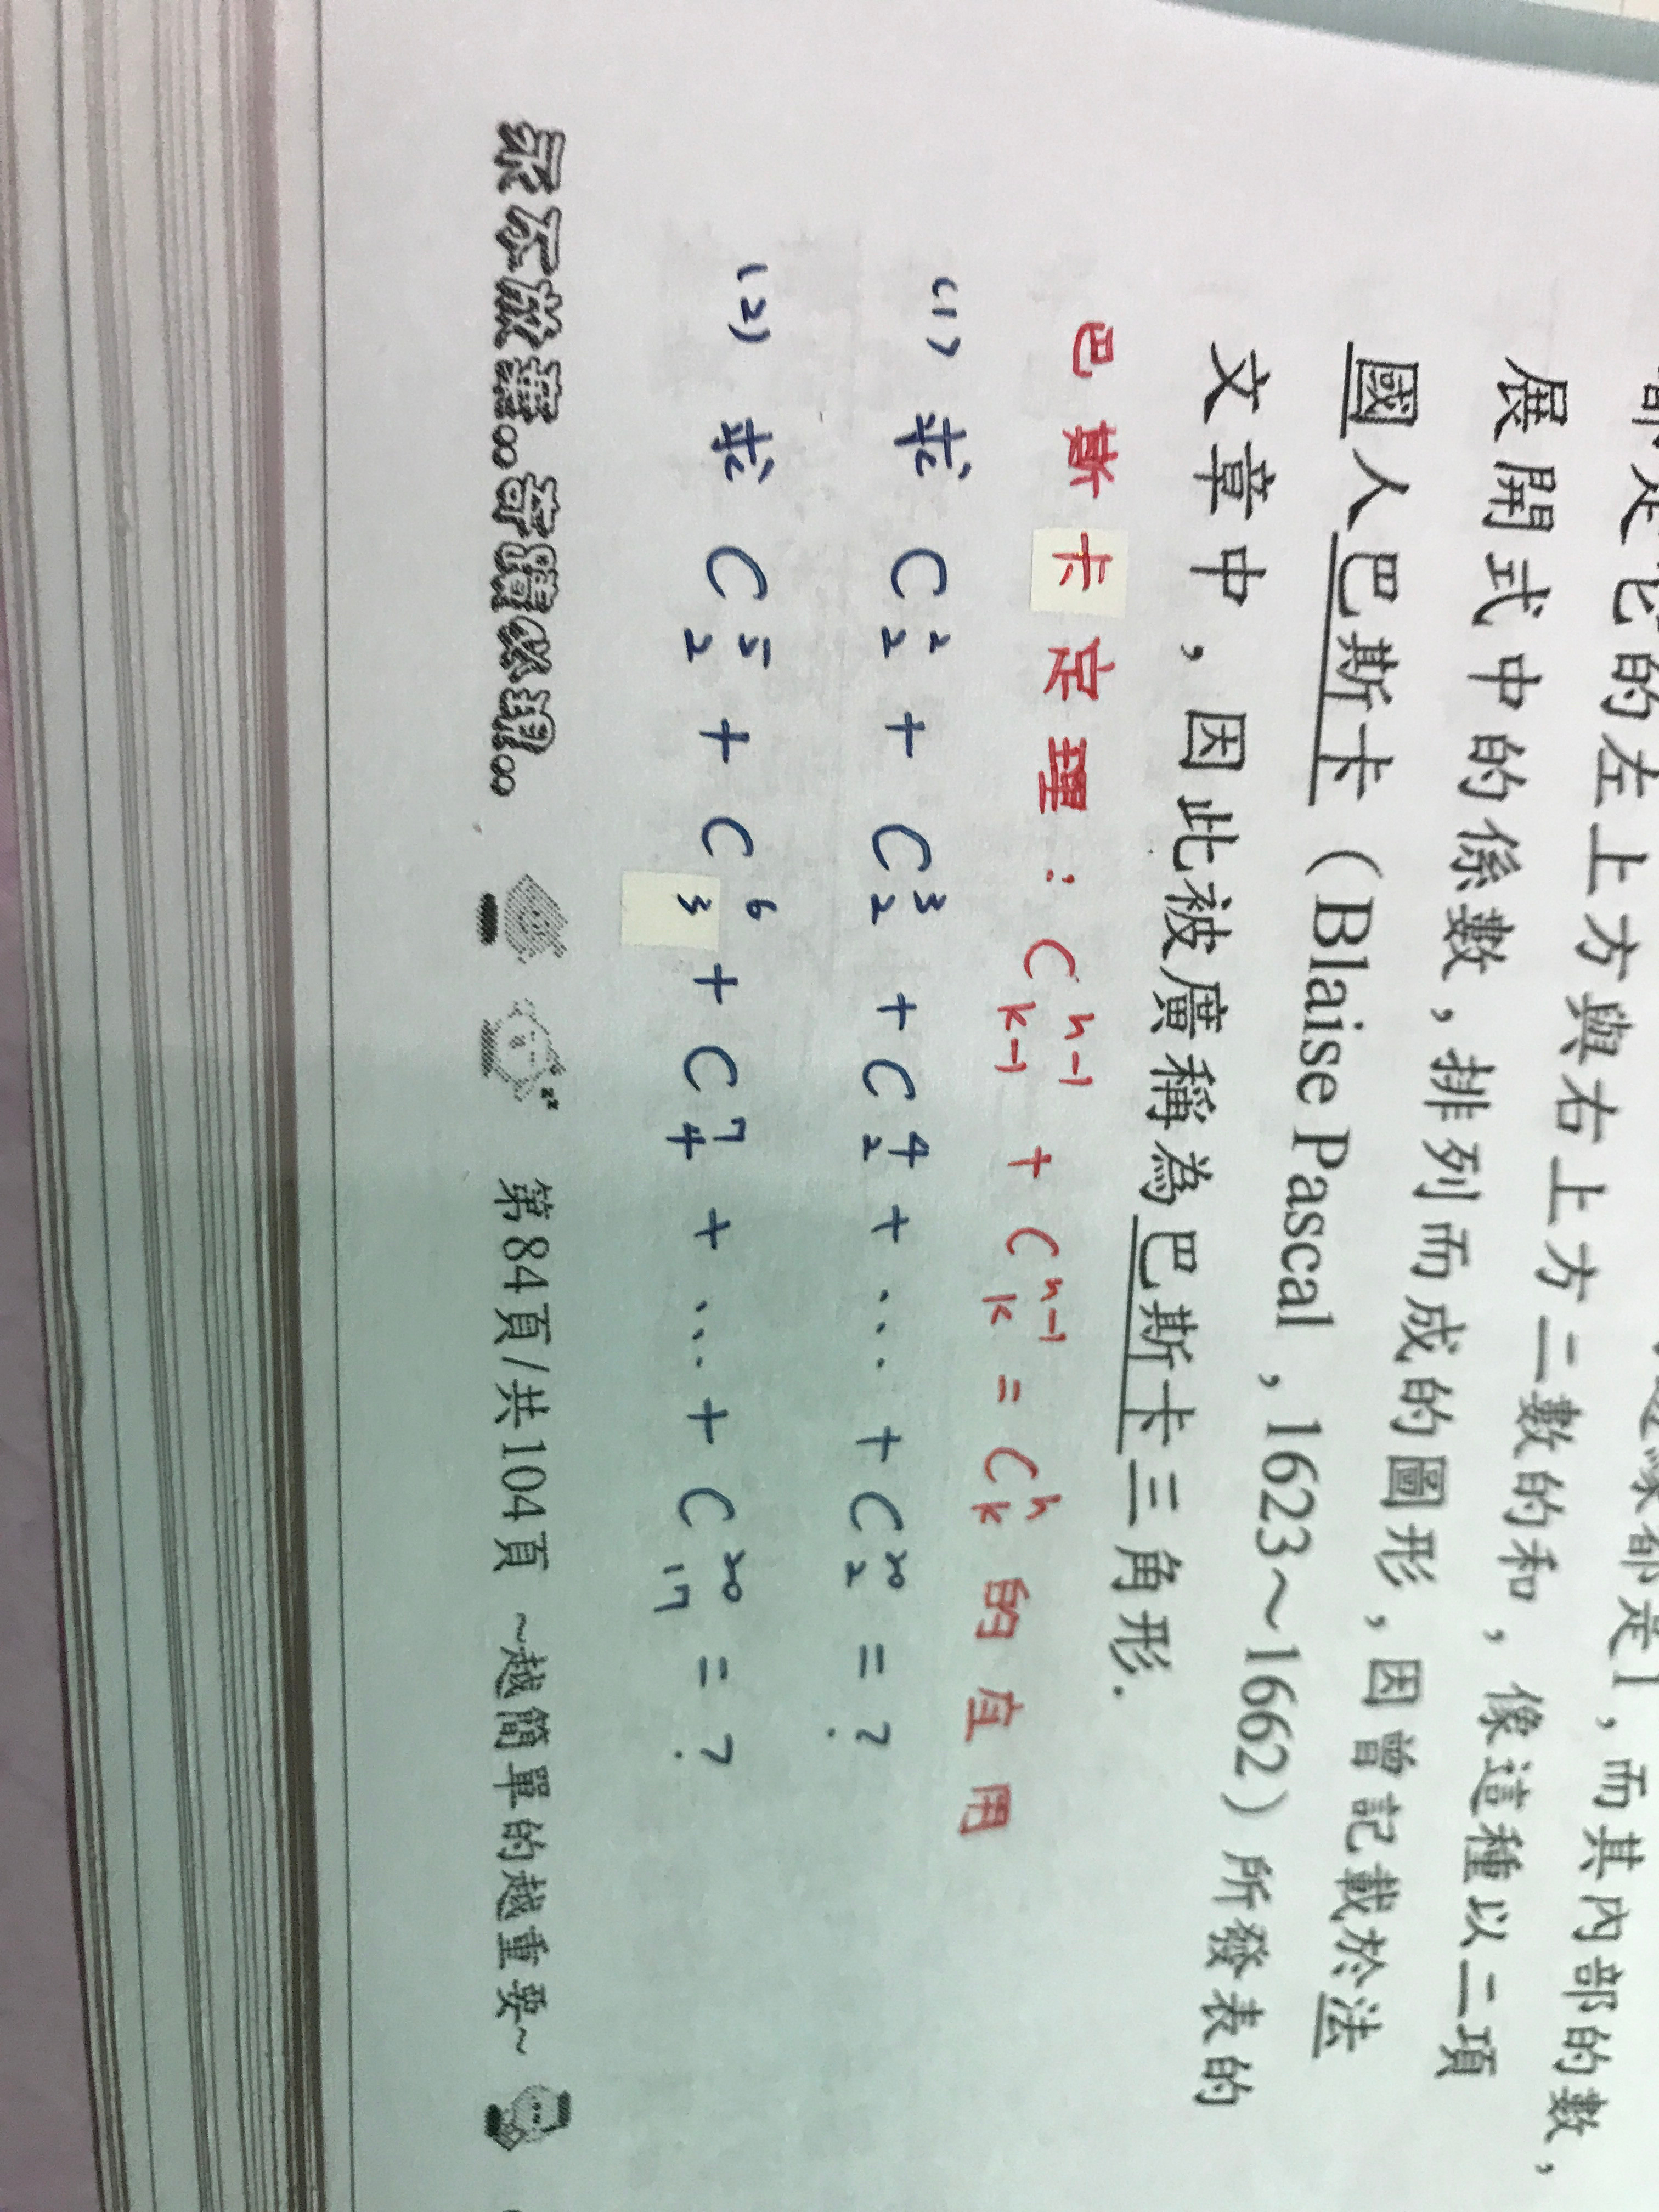 部是它的左上方與右上方二數的和，像這種以二項
展開式中的係數，排列而成的圖形，因曾記載於法
國人巴斯卡（Blaise Pascal，1623～1662）所發表的
文章中，因此被廣稱為巴斯卡三角形．
巴斯卡定理：C^{n-1}_{k-1} + C^{n-1}_{k} = C^{n}_{k} 的應用
(1) 求 C^{2}_{2} + C^{3}_{2} + C^{4}_{2} + … + C^{20}_{2} = ?
(2) 求 C^{5}_{2} + C^{6}_{3} + C^{7}_{4} + … + C^{20}_{17} = ?
永不放棄∞奇蹟必現∞ 第84頁/共104頁 ~越簡單的越重要~